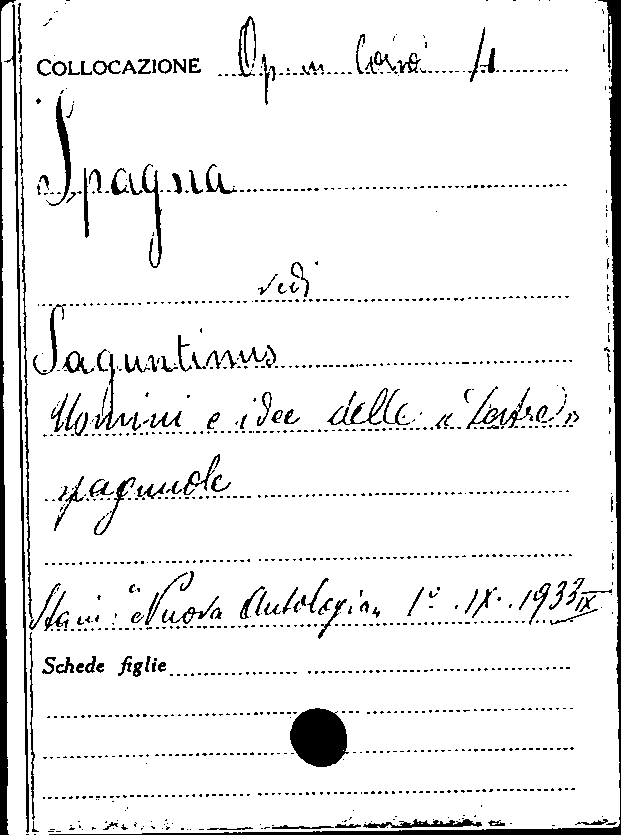 COLLOCAZIONE Op. in Corso 4
Spagna
vedi
Saguntinus
Uomini e idee delle «Destre»
spagnuole
"Nuova Antologia" 1° . IX . 1933 IX
Schede figlie